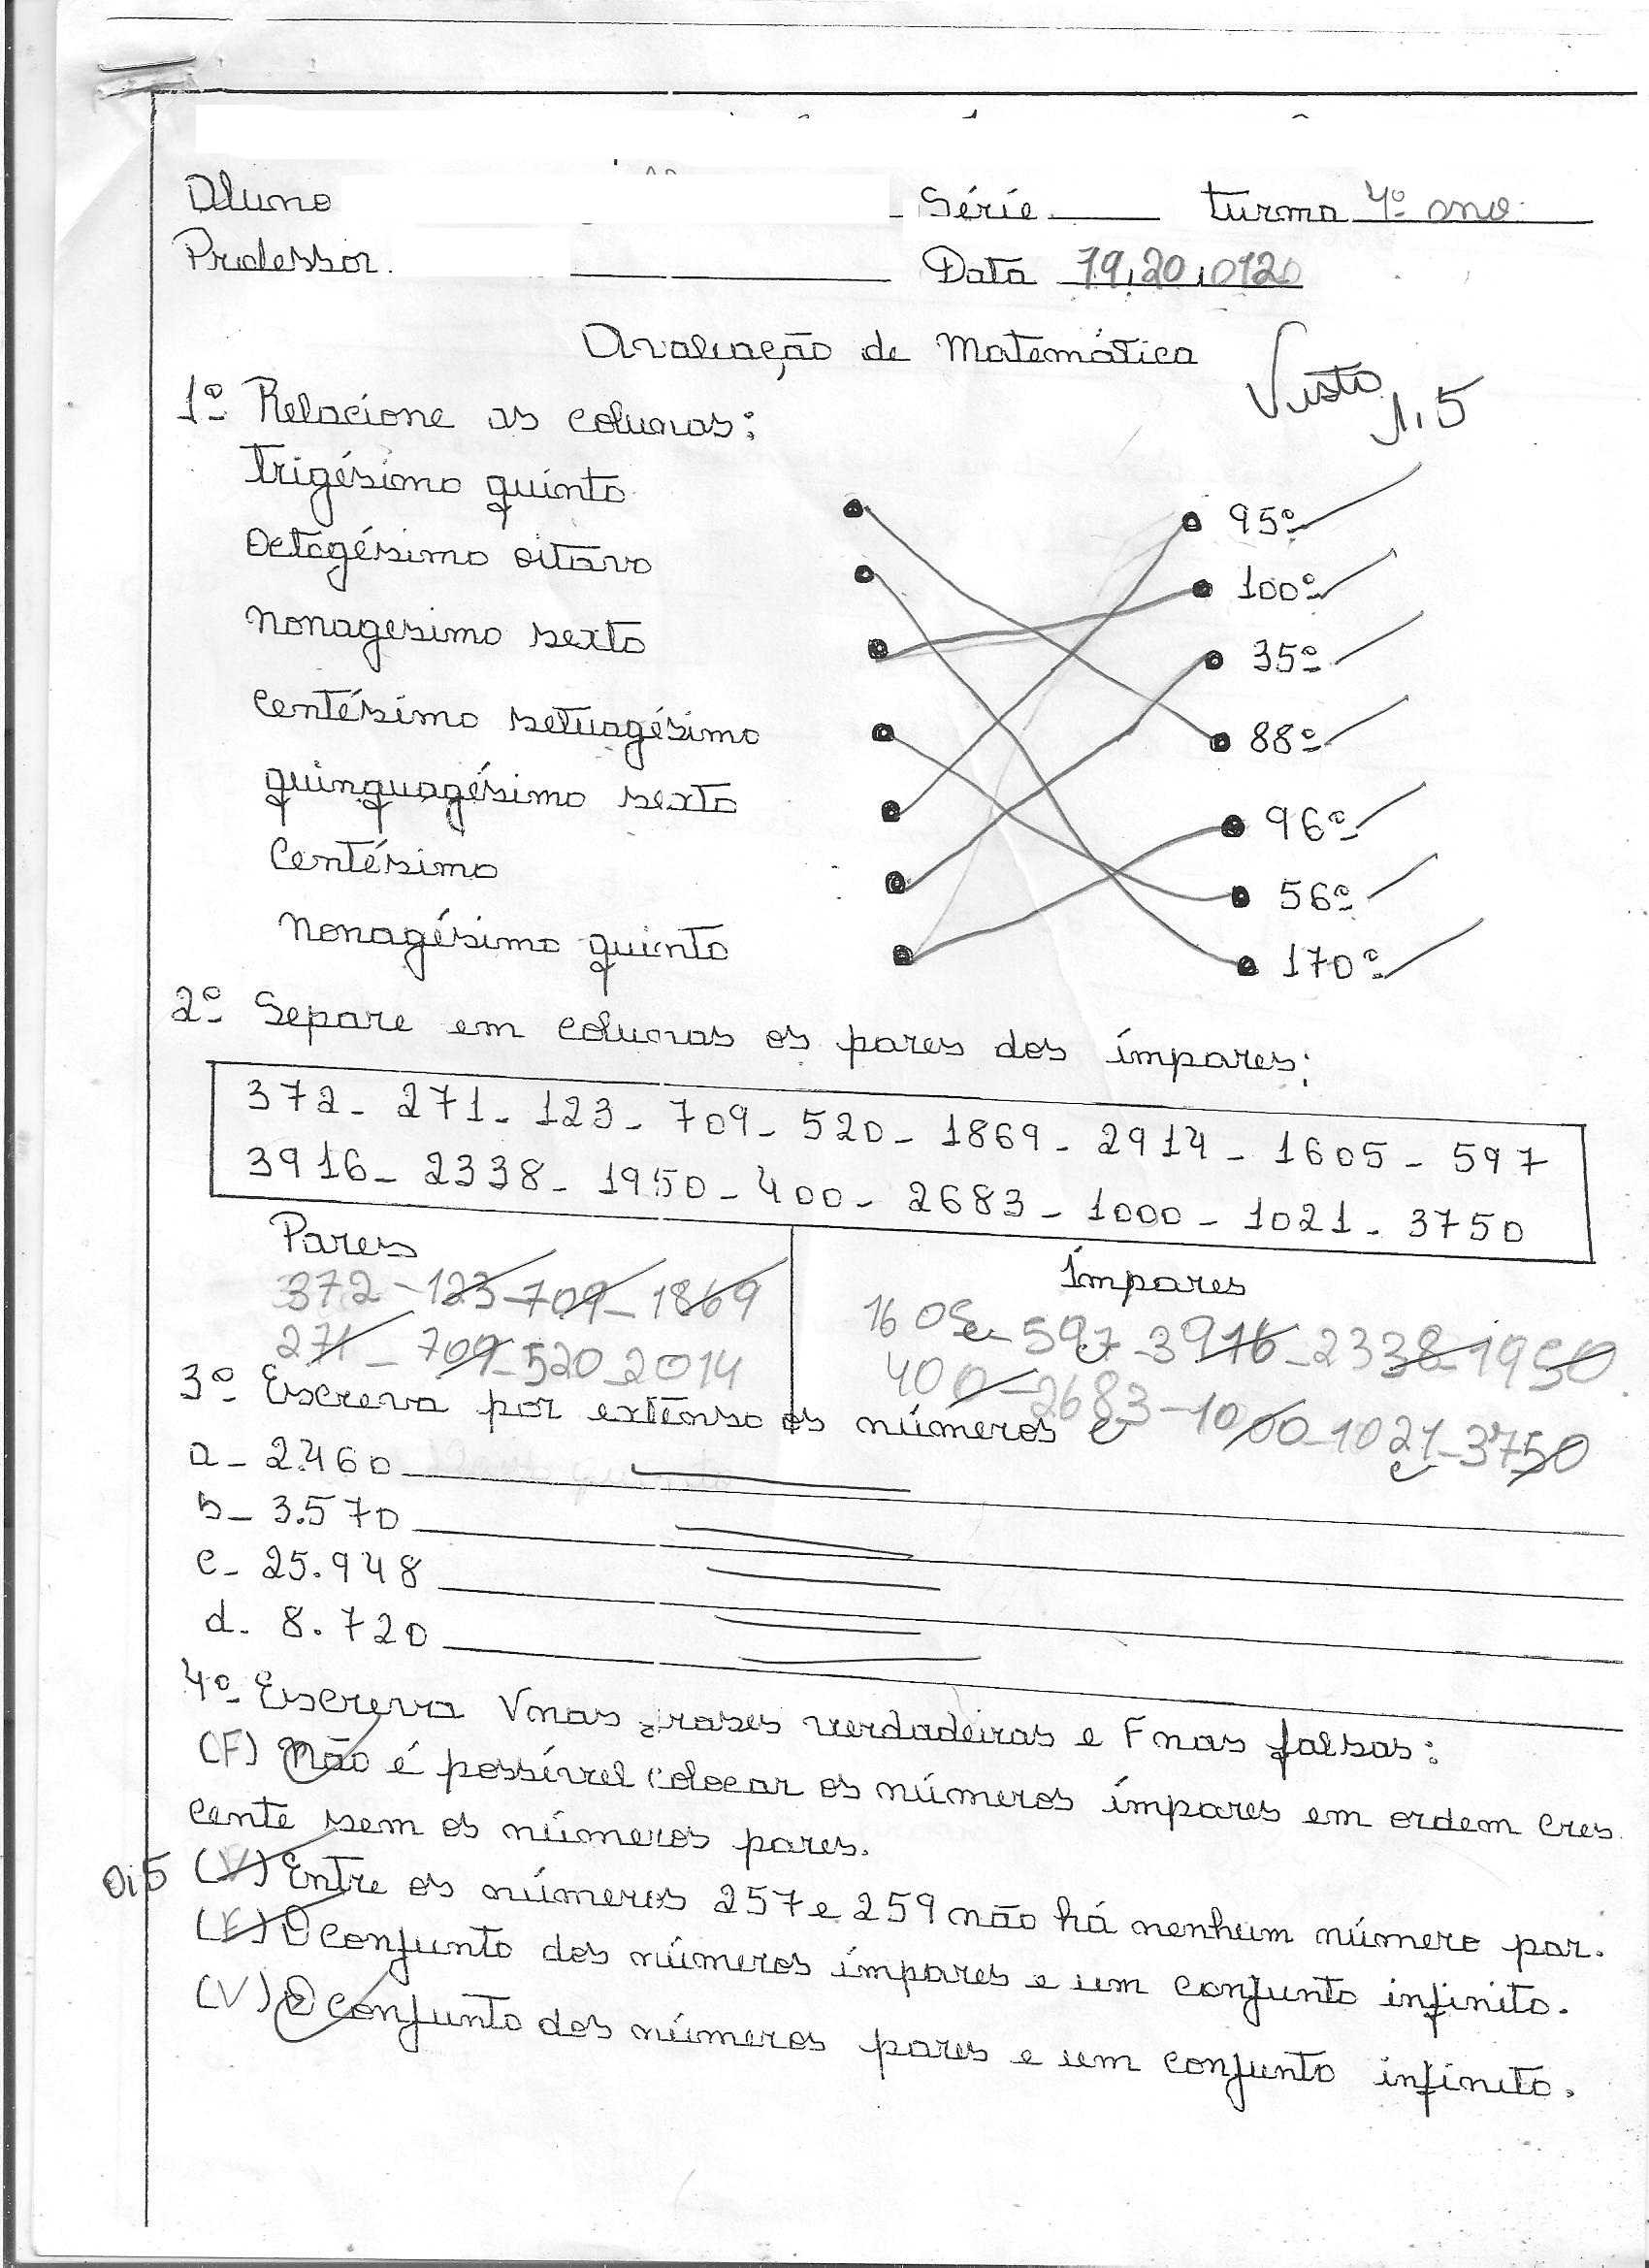 Aluno Série turma 4º ano
Professor. Data 19,20,0120
Avaliação de Matemática
Visto 1,5
1º Relacione as colunas:
Trigésimo quinto 95º
Octagésimo oitavo 100º
Nonagesimo sexto 35º
Centésimo setuagésimo 88º
quinquagésimo sexto 96º
Centésimo 56º
Nonagésimo quinto 170º
2º Separe em colunas os pares dos ímpares:
372 - 271 - 123 - 709 - 520 - 1869 - 2914 - 1605 - 597
3916 - 2338 - 1950 - 400 - 2683 - 1000 - 1021 - 3750
Pares
372 - 123 - 709 - 1869
271 - 709 - 520 - 2014
Ímpares
1605 - 597 - 3916 - 2338 - 1950
400 - 2683 - 1000 - 1021 - 3750
3º Escreva por extenso os números
a - 2.460
b - 3.570
c - 25.948
d. 8.720
4º Escreva V nas frases verdadeiras e F nas falsas:
(F) Não é possível colocar os números ímpares em ordem cres
cente sem os números pares.
0,5 (V) Entre os números 257 e 259 não há nenhum número par.
(F) O conjunto dos números ímpares e um conjunto infinito.
(V) O conjunto dos números pares e um conjunto infinito.